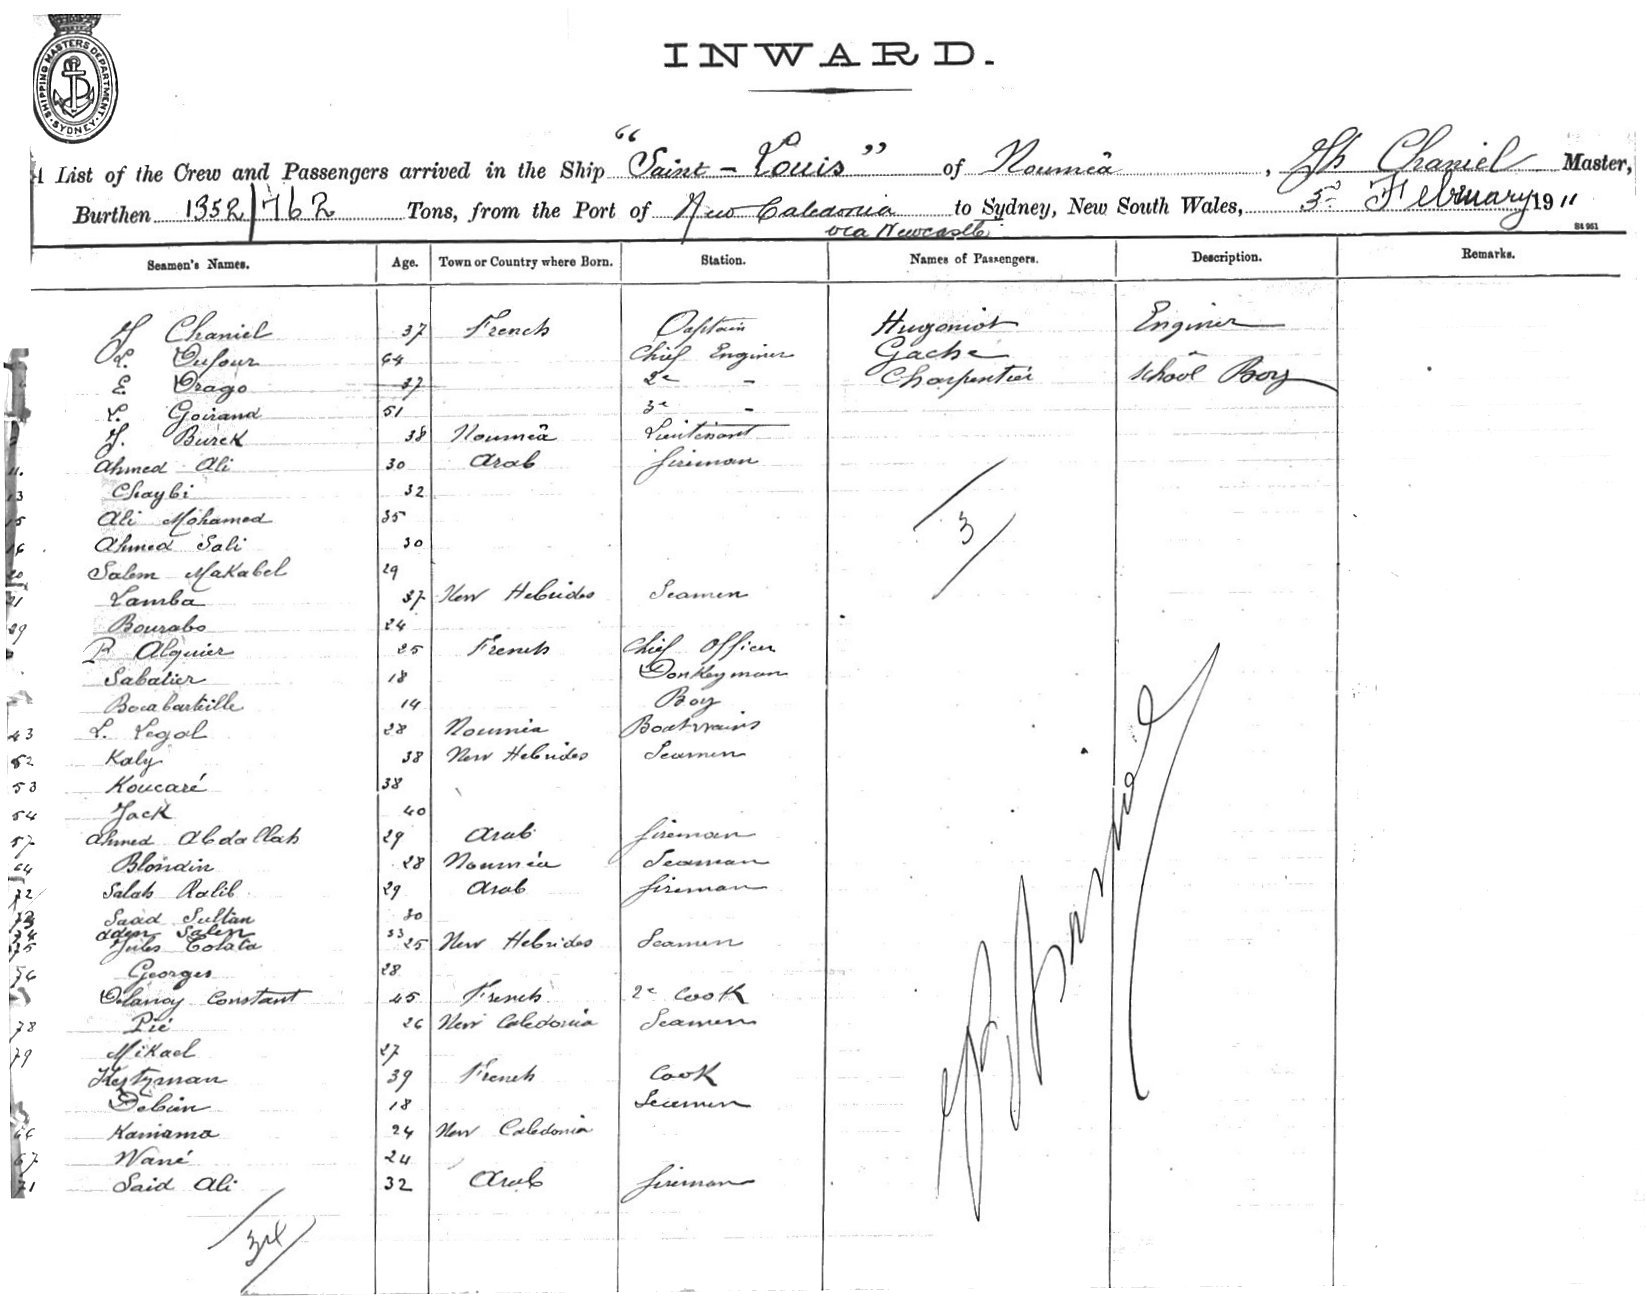 INWARD.
SHIPPING MASTERS DEPARTMENT. SYDNEY
List of the Crew and Passengers arrived in the Ship "Saint-Louis" of Nouméa, Th Chaniel Master,
Burthen 1352/762 Tons, from the Port of New Caledonia to Sydney, New South Wales, 5 February 1911
via Newcastle
Seamen's Names. Age. Town or Country where Born. Station. Names of Passengers. Description. Remarks.
Chaniel 37 French Captain Hugoniot Enginer
L. Dufour 64 Chief Enginer Gache
E Drago 37 2e - Charpentier School Boy
L. Goirand 51 3e -
J. Burck 38 Nouméa Lieutenant
11. Ahmed Ali 30 Arab fireman
13 Chaybi 32
15 Ali Mohamed 35
16 Ahmed Sali 30
20 Salem Makabel 29
21 Lamba 37 New Hebrides Seamen
29 Bourabo 24
P Alquier 25 French Chief Officer
Sabatier 18 Donkeyman
Bocabarteille 14 Boy
43 L. Legal 28 Nouméa Boatswains
52 Kaly 38 New Hebrides Seamen
53 Koucaré 38
54 Jack 40
57 Ahmed Abdallah 29 Arab fireman
64 Blondin 28 Nouméa Seaman
72 Salah Ralib 29 Arab fireman
73 Saad Sultan 30
74 Aden Salem 33
75 Jules Tolata 25 New Hebrides Seamen
76 Georges 28
Delanoy Constant 45 French 2e Cook
78 Pié 26 New Caledonia Seamen
79 Mikael 27
39 French Cook
Debien 18 Seamen
66 Kaniama 24 New Caledonia
67 Wané 24
71 Said Ali 32 Arab fireman
3
34